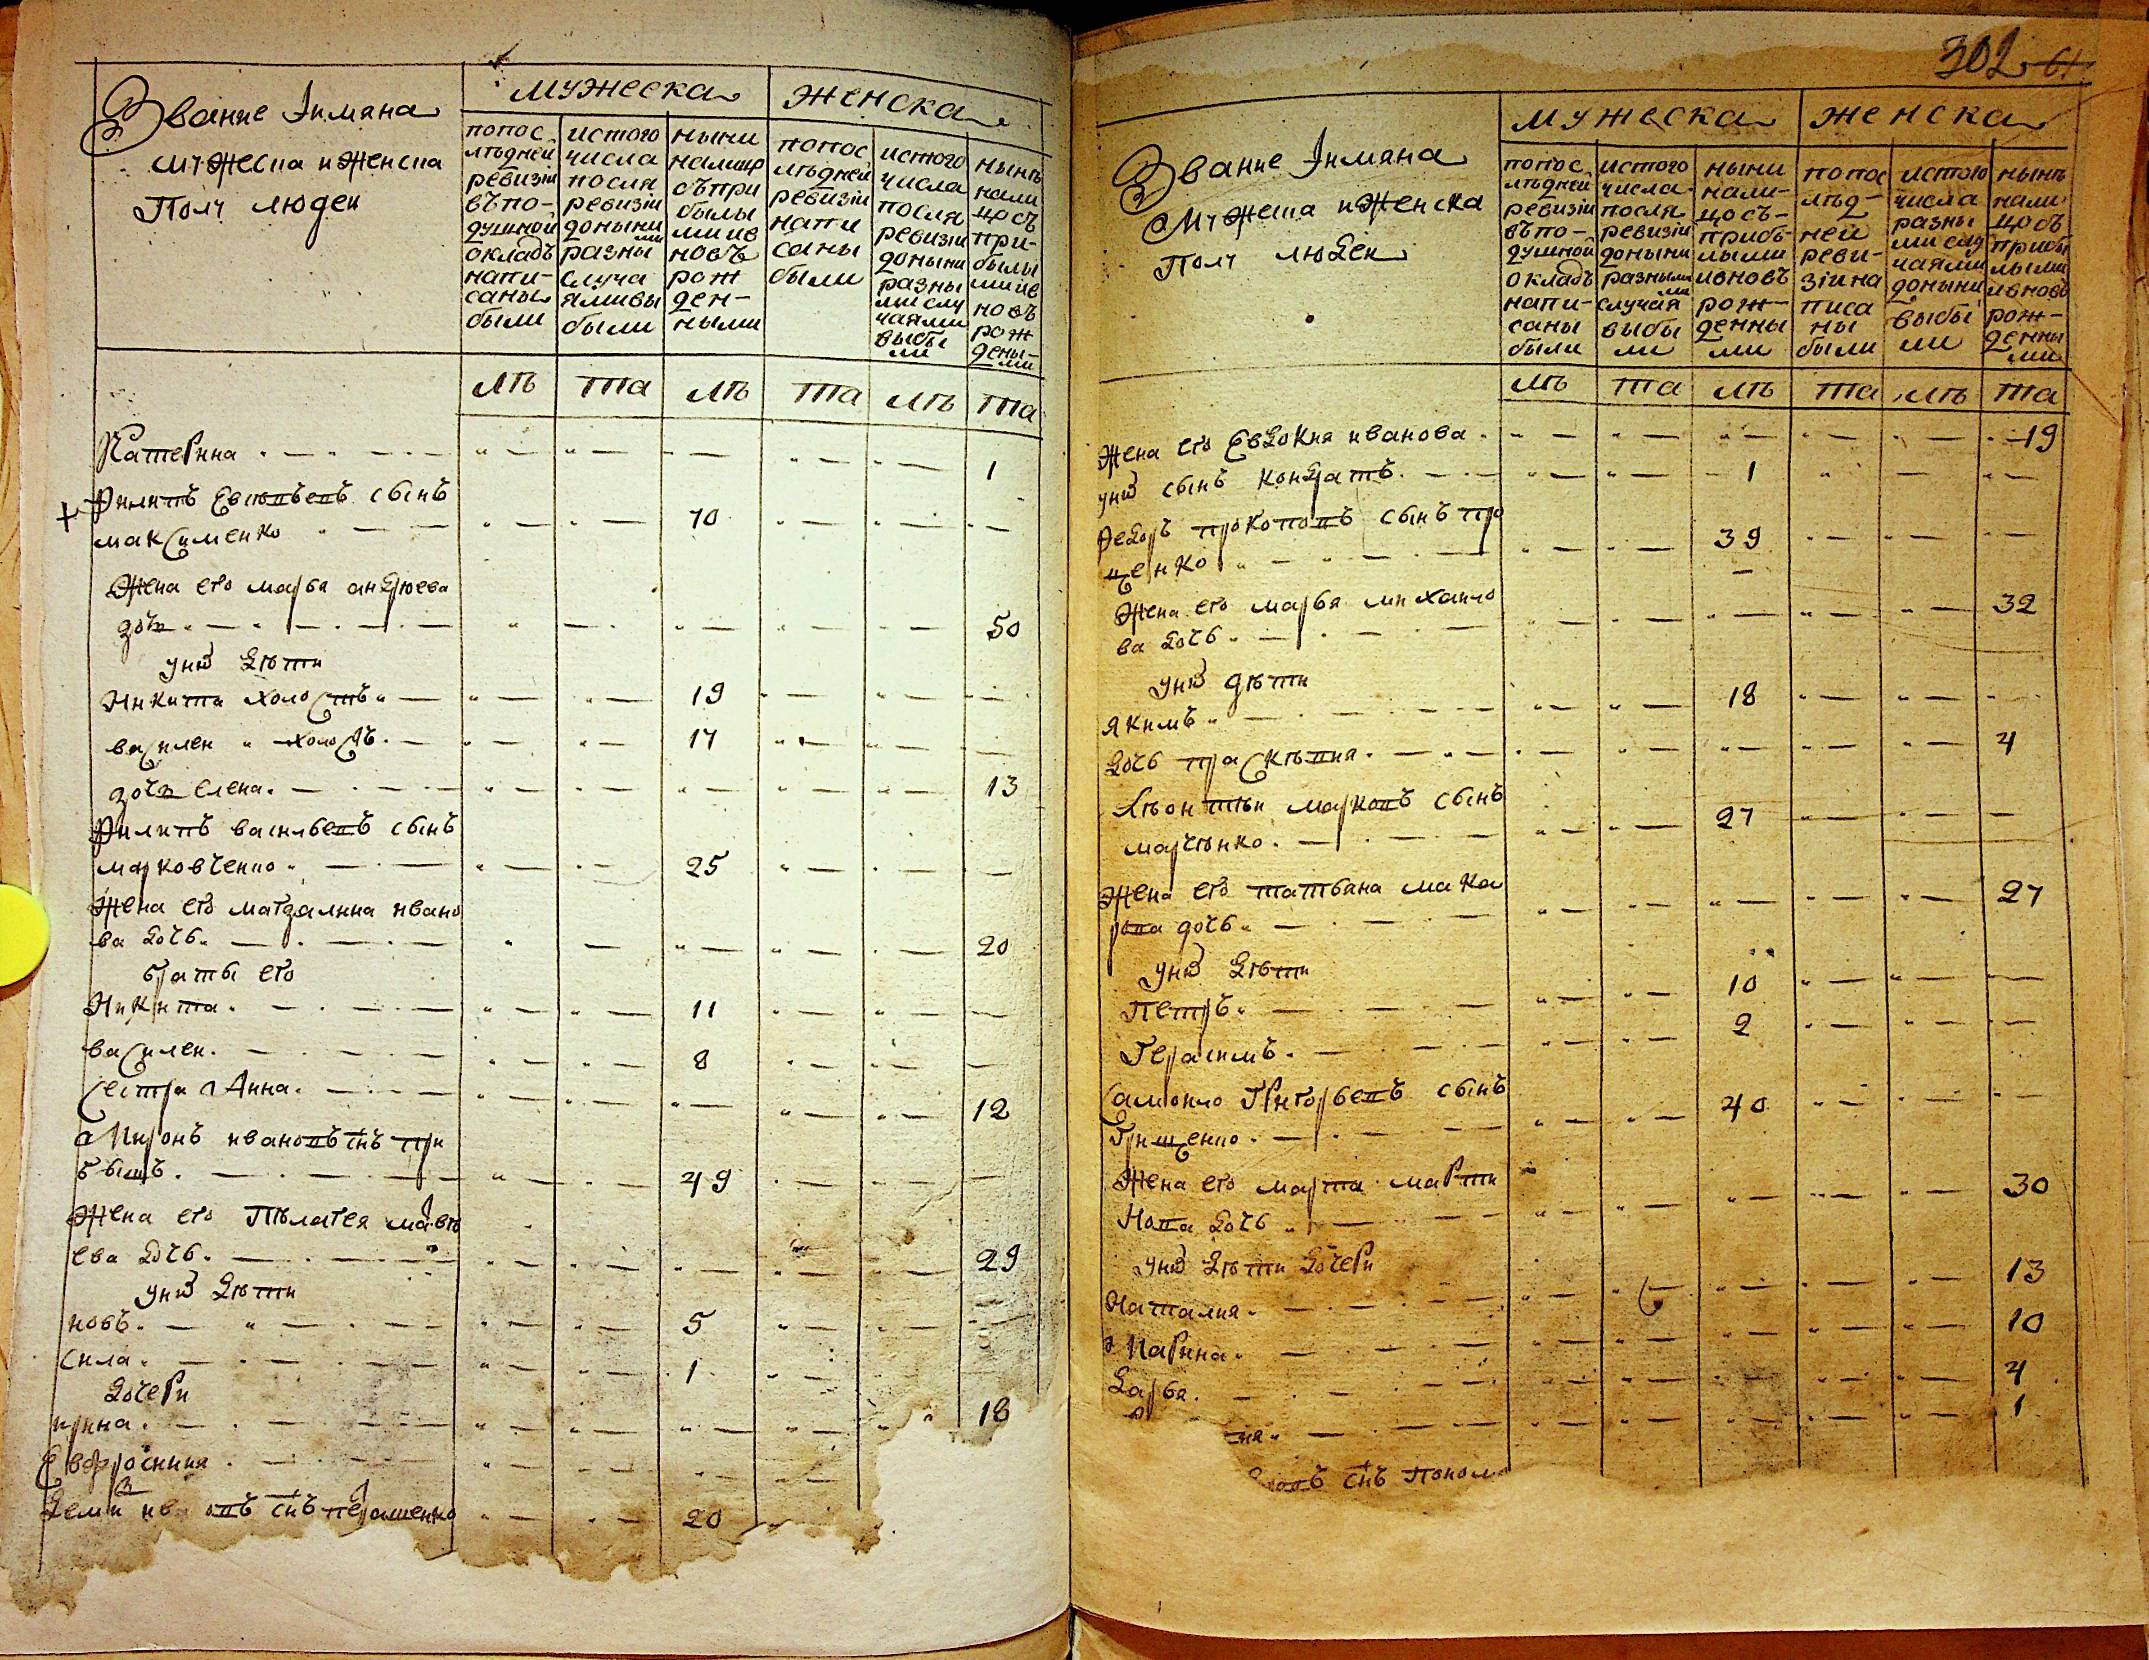 Звание Iимяна
мужеска иженска
Полу людеи
мужеска
женска
попос
лѣдней
ревизіи
въпо-
душной
окладъ
напи-
саны
были
истого
числа
посля
ревизіи
доныни
разны
ми
случа
ямивы
были
ныни
налицо
съпри
былы
мии
новъ
рож
ден-
ными
попос
лѣдней
ревизіи
напи
саны
были
истого
числа
посля
ревизіи
доныни
разны
ми слу
чаями
выбы
ли
нынѣ
нали
цо съ
при-
былы
мии
новъ
рож
дены-
ми
лѣ та лѣ та лѣ та
Катерина 1
Филипъ Евсювъевъ сынъ
максименко 70
Жена его марья андрюева
дочь 50
унихъ дѣти
Никита холостъ 19
василеи холостъ 17
дочь елена 13
Филипъ васильевъ сынъ
марковченко 25
Жена его магдалина ивано
ва дочь 20
браты его
Никита 11
василеи 8
сестра Анна 12
Миронъ ивановъ снъ при
бышъ 49
Жена его Пѣлагея мавѣ
ева дочь 29
унихъ дѣти
иовъ 5
сила 1
дочери
ирина 18
Евфросиния
Деми ив овъ снъ перашенко 20
302 61
Звание Iимяна
Мужеска иженска
Полу людеи
мужеска
женска
попос
лѣдней
ревизіи
въпо-
душной
окладъ
напи-
саны
были
истого
числа
посля
ревизіи
доныни
разными
случая
ми
выбы
ли
ныни
нали-
цо съ-
прибъ-
лыми
ивновъ
рож-
денны
ми
попо
лѣд-
ней
реви-
зіина
писа
ны
были
истого
числа
разны
ми слу
чаями
доныни
выбы
ли
нынѣ
нали
цо съ
прибы
лыми
ивновъ
рож-
денны
ми
лѣ та лѣ та лѣ та
Жена его Евдокия иванова 19
унихъ сынъ кондратъ 1
Федоръ прокоповъ сынъ про
ценко 39
Жена его марья михаило
ва дочь 32
унихъ дѣти
якимъ 18
дочь праскѣвия 4
Лѣонтѣи марковъ сынъ
марченко 27
Жена его татьяна мака
рова дочь 27
унихъ дѣти
Петръ 10
Герасимъ 2
Самоило Григорьевъ сынъ
Грищенко 40
Жена его марта марти
нова дочь 30
унихъ дѣти дочери
Наталия 13
Марина 10
Дарья 4
ия 1
овъ снъ Поном